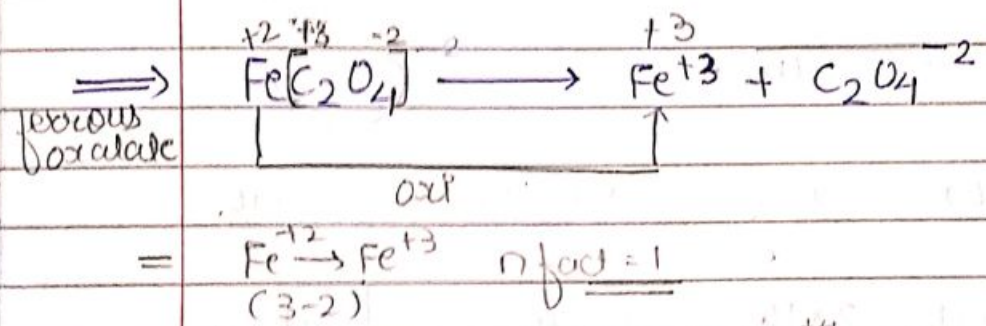 +2 +3 -2 +3
⟹ Fe[C₂O₄] ⟶ Fe⁺³ + C₂O₄⁻²
ferrous
oxalate
oxi
= Fe⁺² → Fe⁺³ n fact = 1
(3-2)